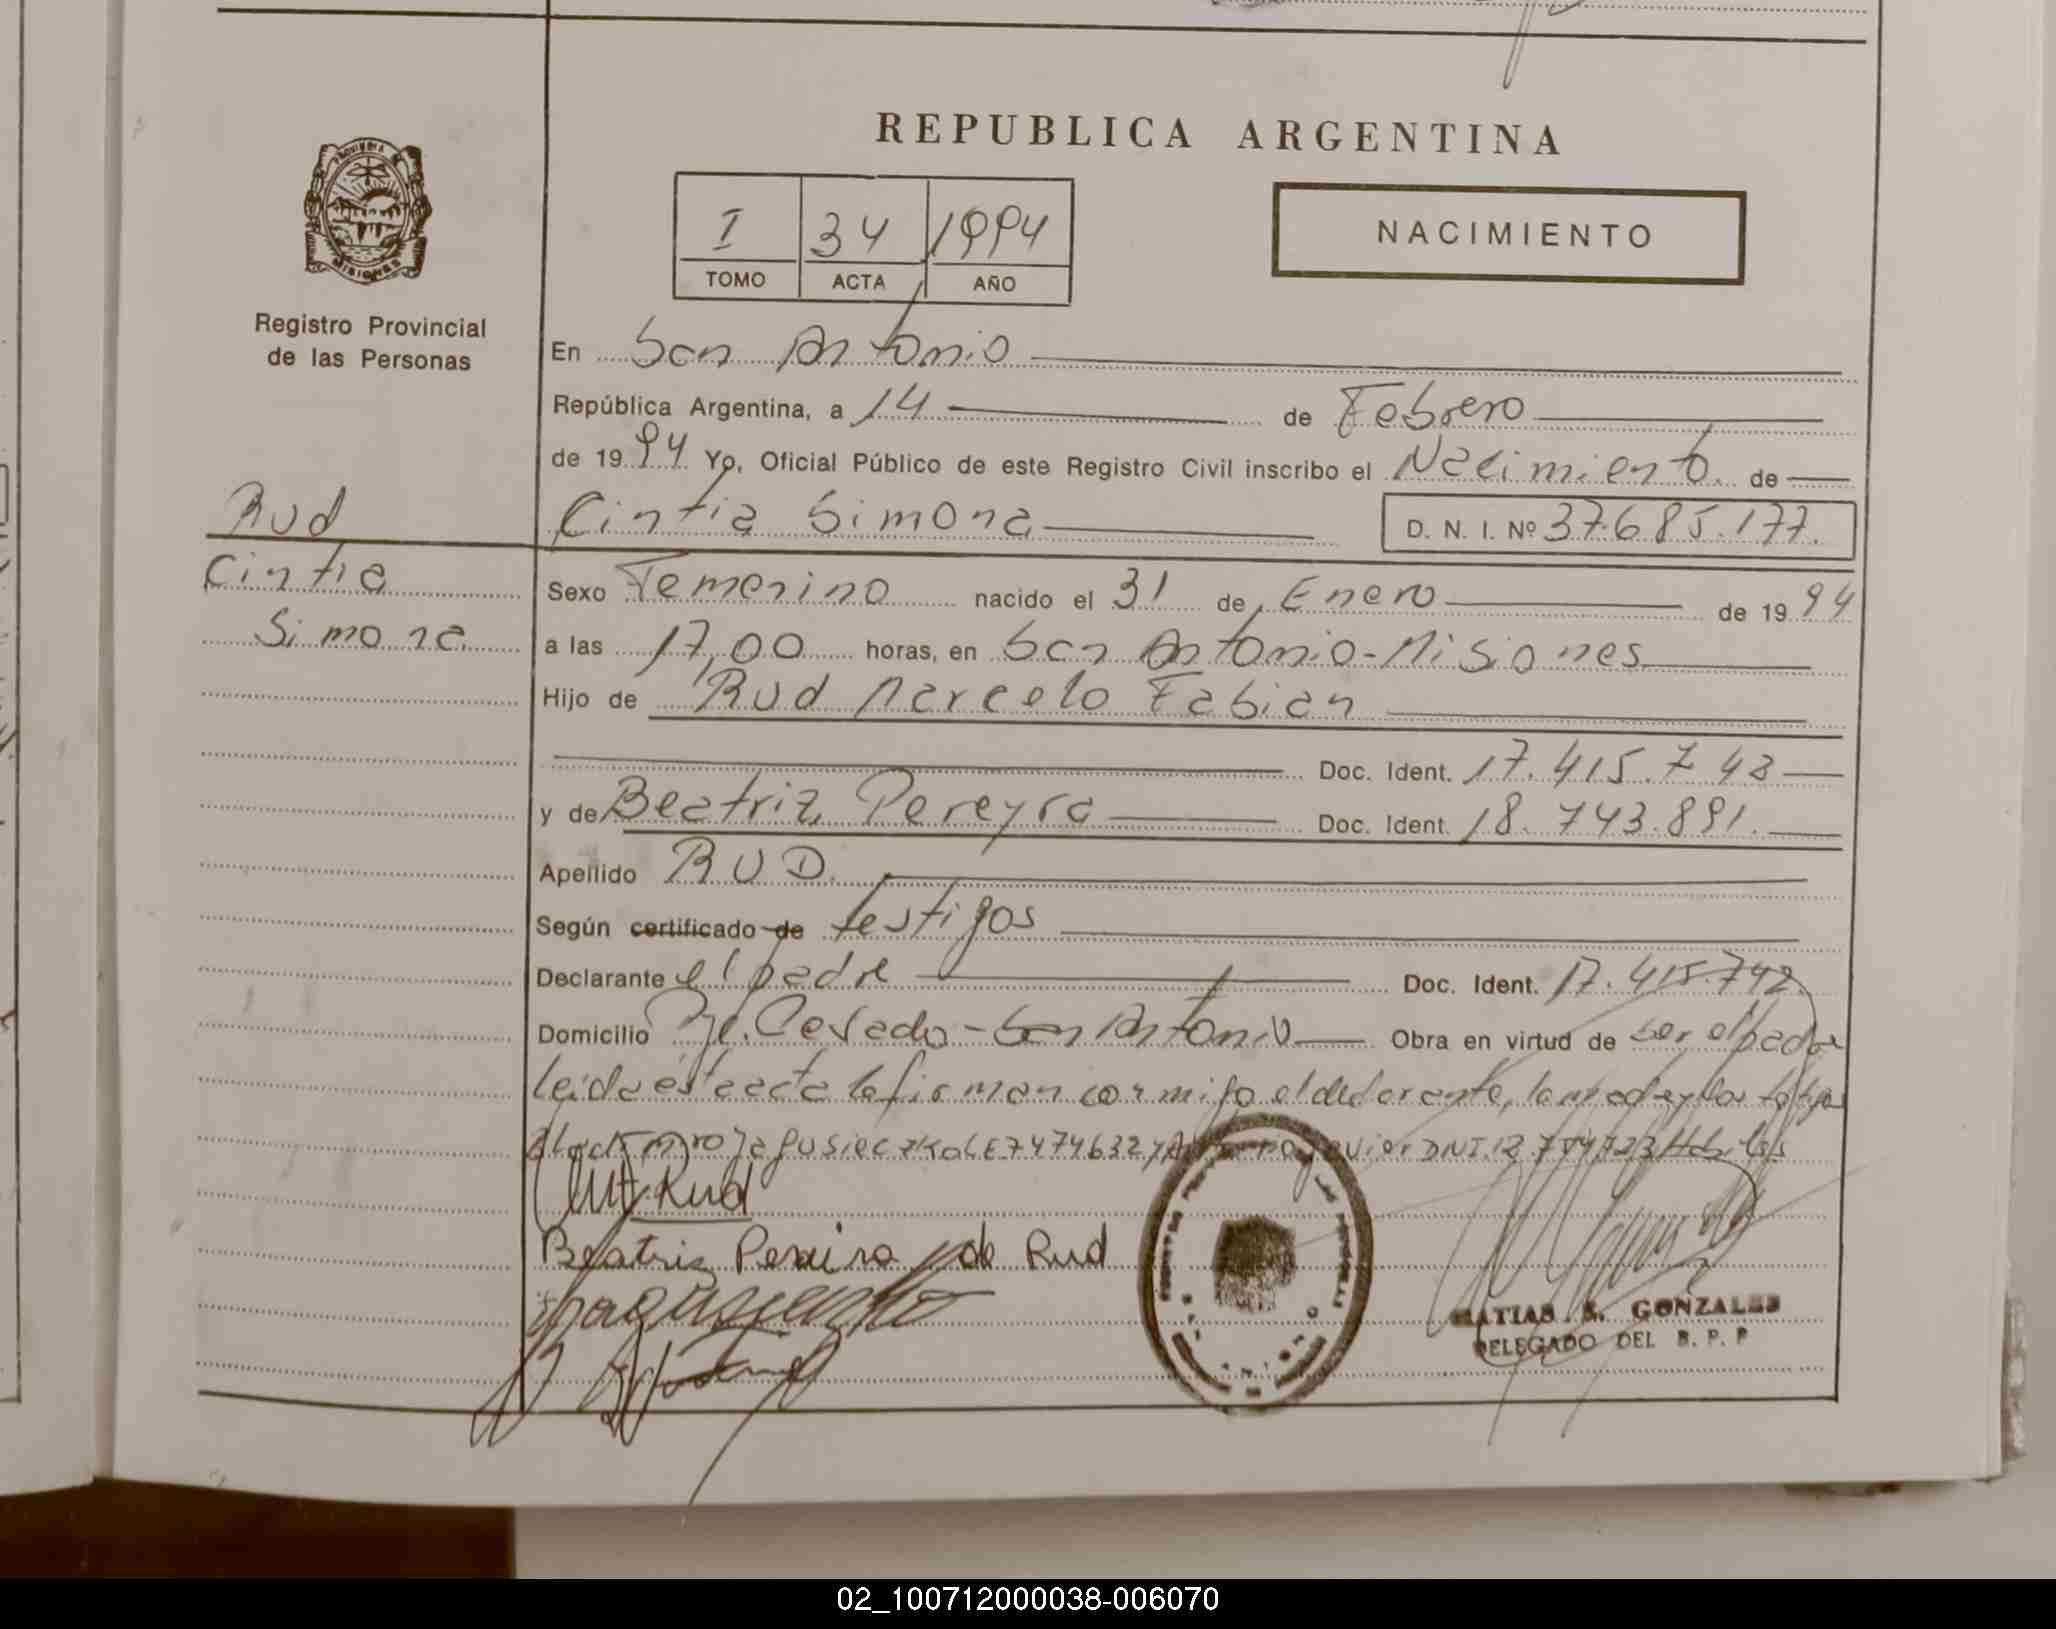 REPUBLICA ARGENTINA
PROVINCIA DE
MISIONES
Registro Provincial
de las Personas
I 34 1994
TOMO ACTA AÑO
NACIMIENTO
En San Antonio
República Argentina, a 14 de Febrero
de 1994 Yo, Oficial Público de este Registro Civil inscribo el Nacimiento de
Rud
Cintia Simona D. N. I. Nº 37.685.177.
Cintia
Simona
Sexo Femenino nacido el 31 de Enero de 1994
a las 17,00 horas, en San Antonio-Misiones
Hijo de Rud Marcelo Fabian
Doc. Ident. 17.415.743
y de Beatriz Pereyra Doc. Ident. 18.743.891.
Apellido RUD.
Según certificado de testigos
Declarante el padre Doc. Ident. 17.415.742
Domicilio Pje. Cesado-San Antonio Obra en virtud de ser el padre
leida ésta acta la firman conmigo el declarante, la madre y los testigos
LE7474632 y DNI.12.754.723 Habiles
M.F. Rud
Beatriz Pereira de Rud
MATIAS S. GONZALES
DELEGADO DEL R. P. P
02_100712000038-006070